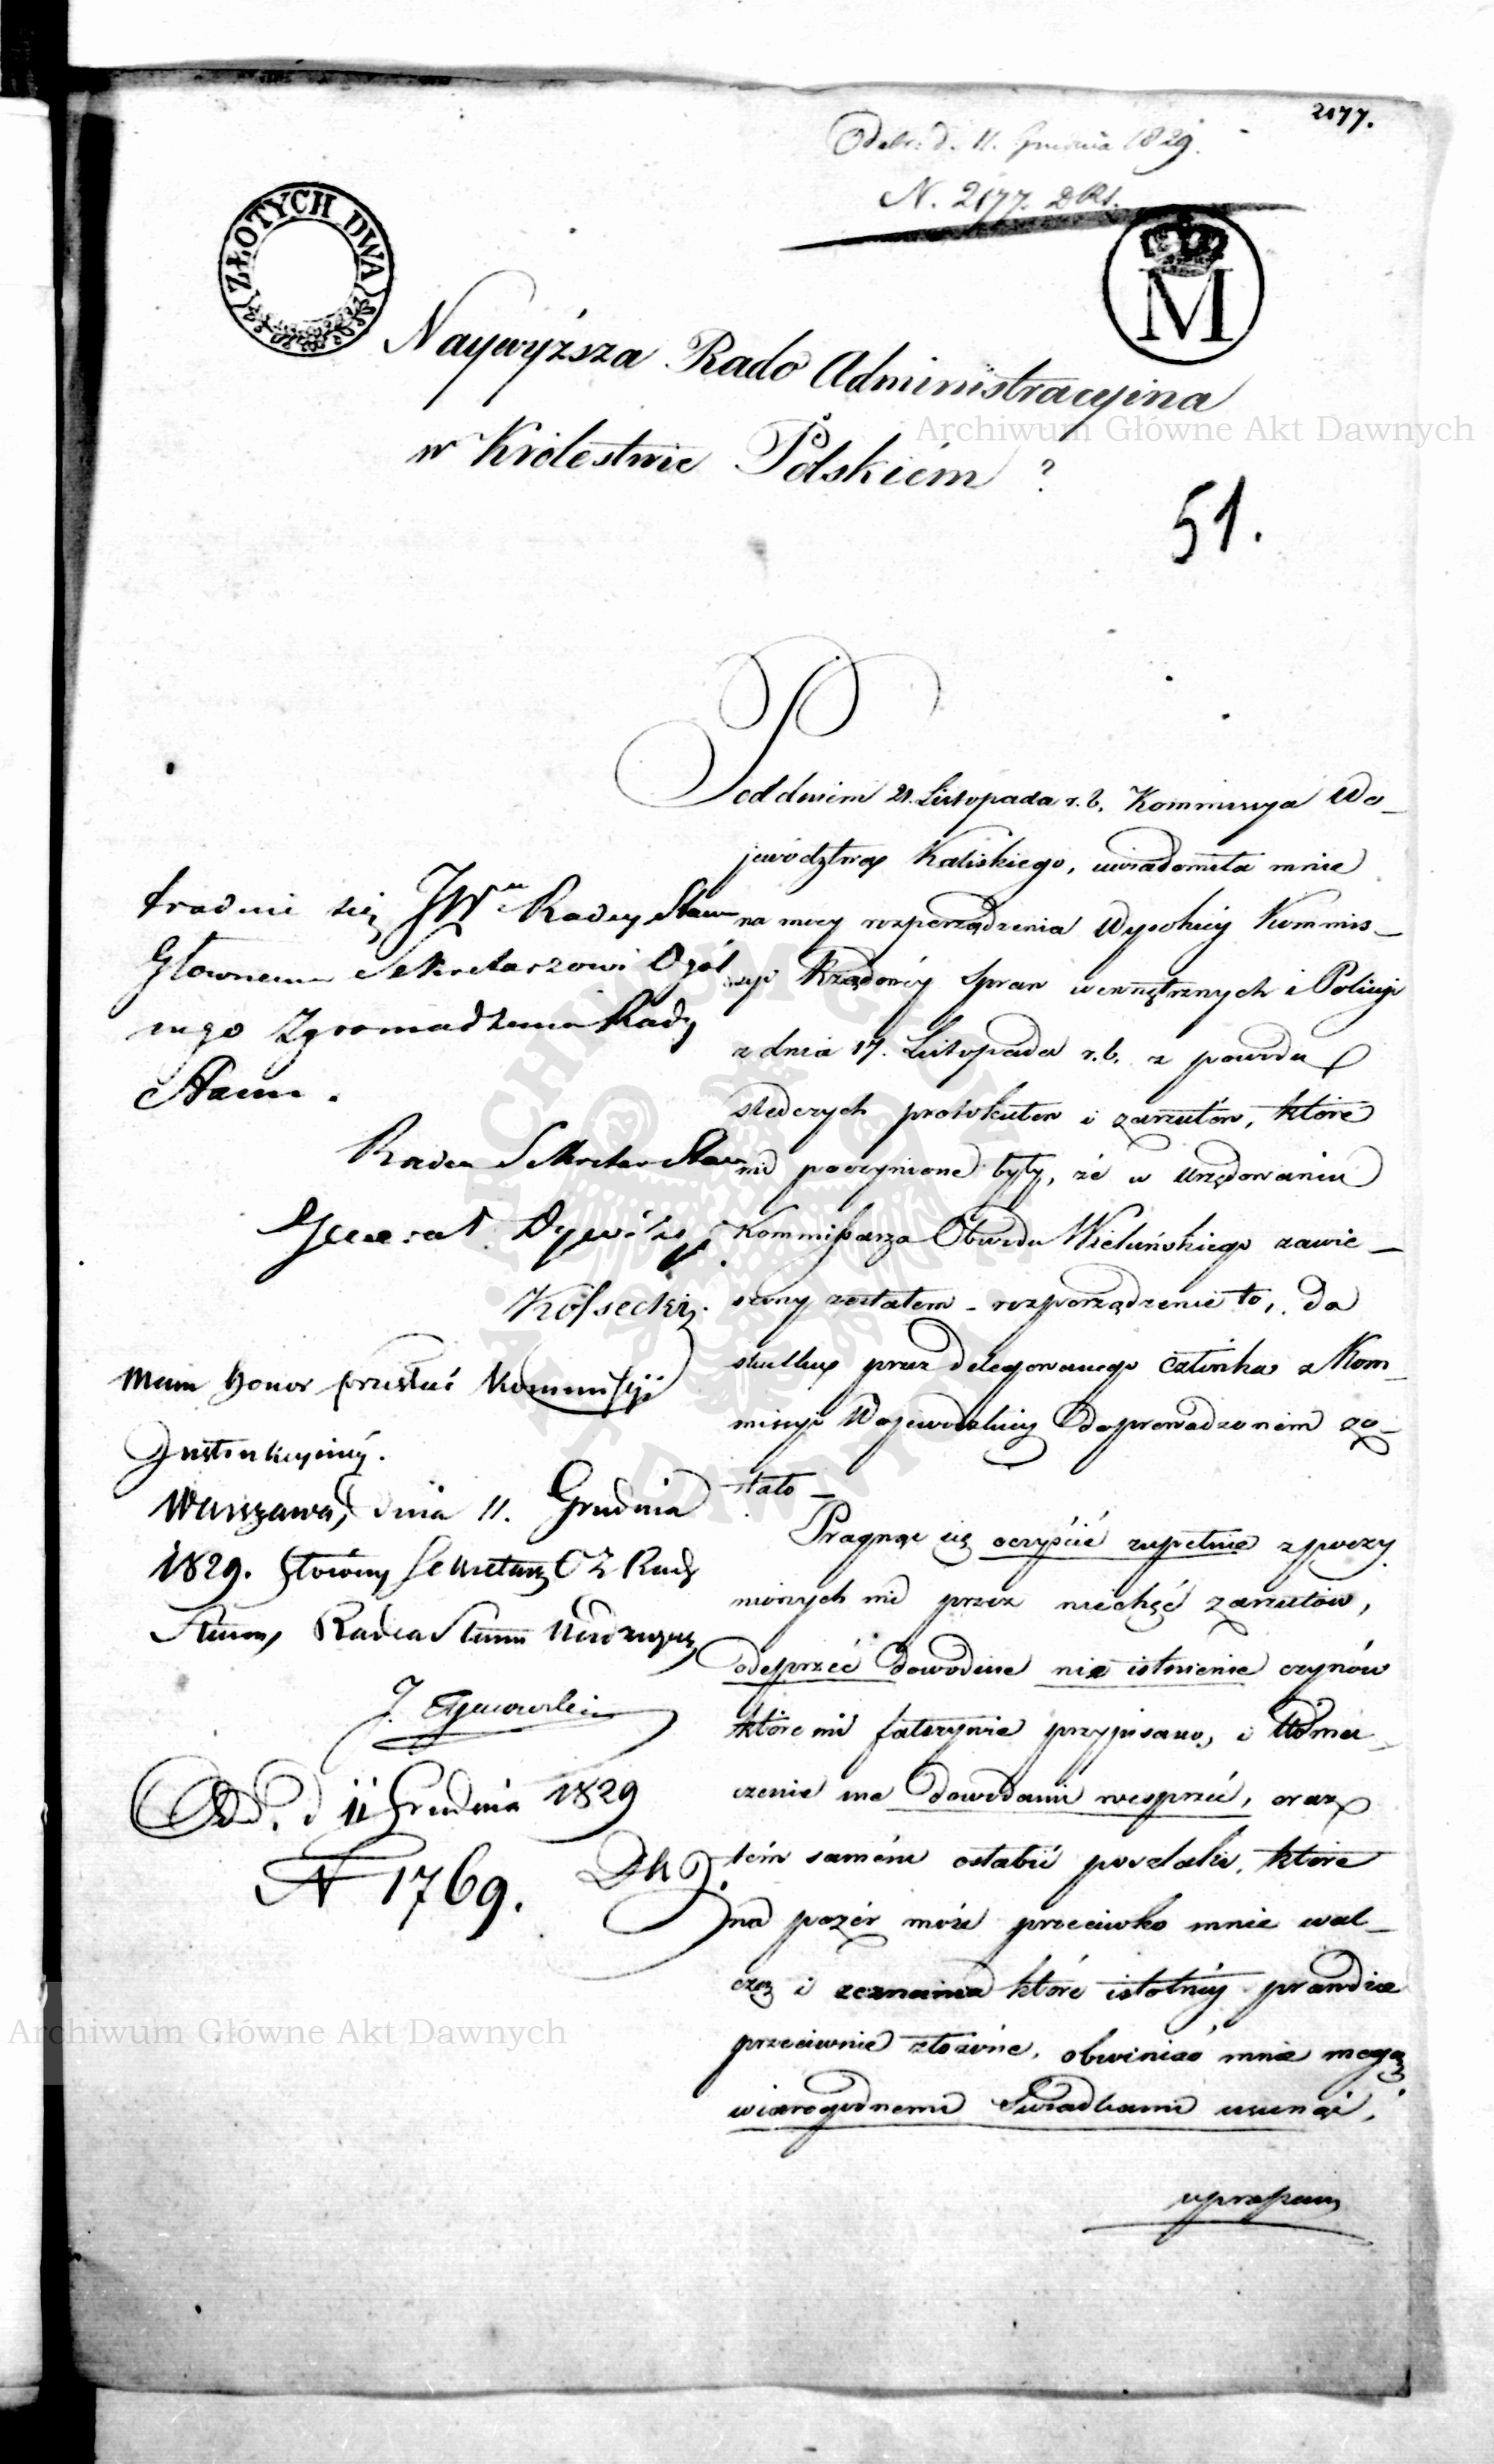 2177.
Odebr. d. 11. Grudnia 1829.
N. 2177. DRS.
ZŁOTYCH DWA
M
Naywyższa Rado Administracyina
w Królestwie Polskiém?
51.
Pod dniem 21. Listopada r. b. Kommissya Wo-
jewództwa Kaliskiego, uwiadomiła mnie
na mocy rozporządzenia Wysokiey Kommis-
syi Rządowéy Spraw wewnętrznych i Policyi
z dnia 17. Listopada r. b. z powodu
śledczych protokułów i zarzutów, które
mi poczynione były, że w urzędowaniu
Kommissarza Obwodu Wieluńskiego zawie-
szony zostałem - rozporządzenie to, do
skutku przez delegowanego Członka z Kom-
missyi Wojewódzkiey doprowadzoném zo-
stało -
Pragnąc się oczyścić zupełnie z poczy
nionych mi przez niechęć zarzutów,
odeprzeć dowodnie nie istnienie czynów
które mi fałszywie przypisano, i tłóma-
czenie me dowodami wesprzéć, oraz
tém samém osłabić poszlaki, które
na pozór móże przeciwko mnie wal-
czą i zeznania które istotnéy prawdzie
przeciwnie złożóne, obwiniać mnie mogą
wiarogodnemi Świadkami usunąć,
upraszam
Głownemu Sekretarzowi Ogól
nego Zgromadzenia Rady
Stanu.
Radca Sekretarz Stanu
Generał Dywizyi
Kossecki
Mam honor przesłać Kommissyi
Instrukcyiney.
Warszawa, dnia 11. Grudnia
1829. Główny Sekretarz O Z Rady
Stanu, Radca Stanu Nadzwyczay
Od. d 11 Grudnia 1829
N 1769.